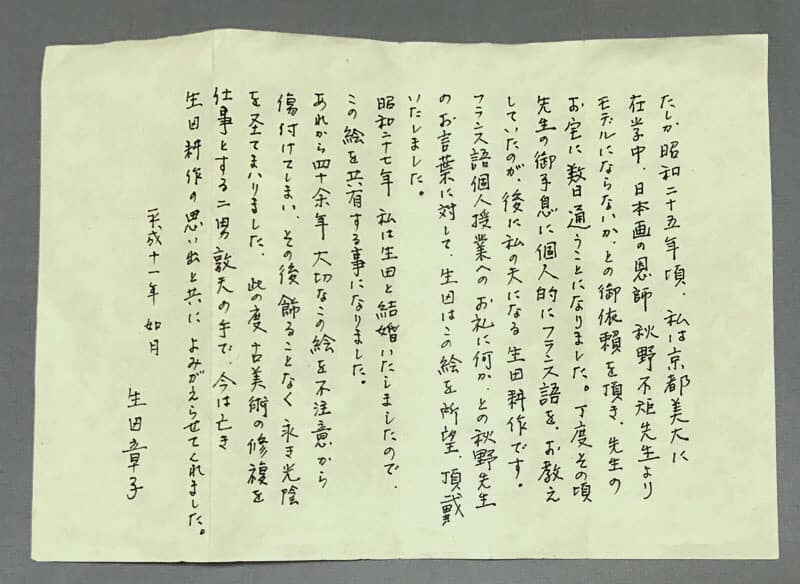 たしか昭和二十五年頃、私は京都美大に
在学中、日本画の恩師 秋野不矩先生より
モデルにならないか、との御依頼を頂き、先生の
お宅に数日通うことになりました。丁度その頃
先生の御子息に個人的にフランス語を、お教え
していたのが、後に私の夫になる生田耕作です。
フランス語個人授業への お礼に何か、との秋野先生
のお言葉に対して、生田はこの絵を所望、頂戴
いたしました。
昭和二十七年 私は生田と結婚いたしましたので、
この絵を共有する事になりました。
あれから四十余年 大切なこの絵を不注意から
傷付けてしまい、その後 飾ることなく 永き光陰
を経てまいりました。此の度 古美術の修複を
仕事とする二男 敦夫の手で、今は亡き
生田耕作の思い出と共に よみがえらせてくれました。
平成十一年 如月
生田章子